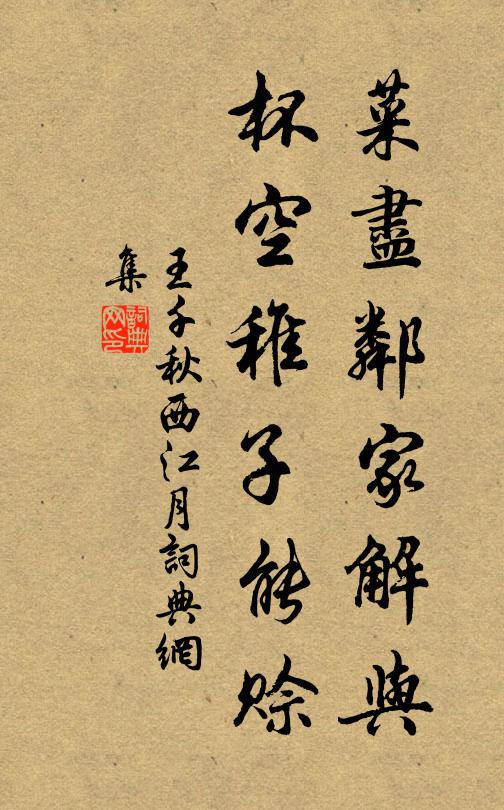 菜盡鄰家解與
杯空稚子能賒
王千秋西江月詞典網
集
詞典
网印